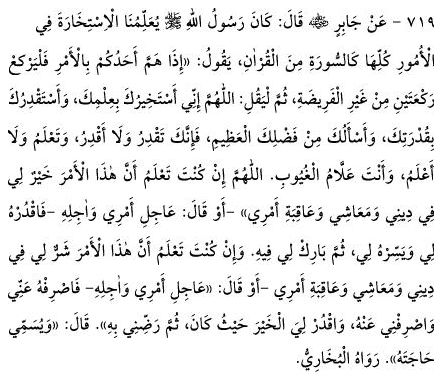 ٧١٩ - عَنْ جَابِرٍ ﵁ قَالَ: كَانَ رَسُولُ اللهِ ﷺ يُعَلِّمُنَا الْاِسْتِخَارَةَ فِي
الْأُمُورِ كُلِّهَا كَالسُّورَةِ مِنَ الْقُرْاٰنِ، يَقُولُ: «إِذَا هَمَّ أَحَدُكُمْ بِالْأَمْرِ فَلْيَرْكَعْ
رَكْعَتَيْنِ مِنْ غَيْرِ الْفَرِيضَةِ، ثُمَّ لْيَقُلِ: اللّٰهُمَّ إِنِّي أَسْتَخِيرُكَ بِعِلْمِكَ، وَأَسْتَقْدِرُكَ
بِقُدْرَتِكَ، وَأَسْأَلُكَ مِنْ فَضْلِكَ الْعَظِيمِ، فَإِنَّكَ تَقْدِرُ وَلَا أَقْدِرُ، وَتَعْلَمُ وَلَا
أَعْلَمُ، وَأَنْتَ عَلَّامُ الْغُيُوبِ. اللّٰهُمَّ إِنْ كُنْتَ تَعْلَمُ أَنَّ هٰذَا الْأَمْرَ خَيْرٌ لِي
فِي دِينِي وَمَعَاشِي وَعَاقِبَةِ أَمْرِي» -أَوْ قَالَ: عَاجِلِ أَمْرِي وَاٰجِلِهِ -فَاقْدُرْهُ
لِي وَيَسِّرْهُ لِي، ثُمَّ بَارِكْ لِي فِيهِ. وَإِنْ كُنْتَ تَعْلَمُ أَنَّ هٰذَا الْأَمْرَ شَرٌّ لِي فِي
دِينِي وَمَعَاشِي وَعَاقِبَةِ أَمْرِي -أَوْ قَالَ: «عَاجِلِ أَمْرِي وَاٰجِلِهِ- فَاصْرِفْهُ عَنِّي
وَاصْرِفْنِي عَنْهُ، وَاقْدُرْ لِيَ الْخَيْرَ حَيْثُ كَانَ، ثُمَّ رَضِّنِي بِهِ». قَالَ: «وَيُسَمِّي
حَاجَتَهُ». رَوَاهُ الْبُخَارِيُّ.